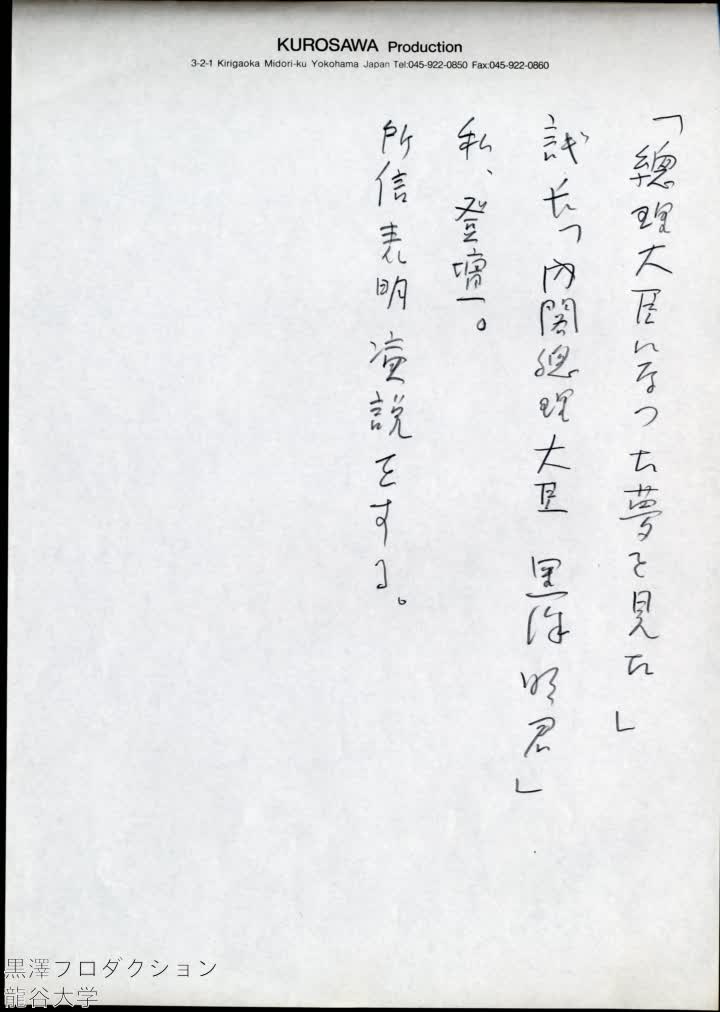 KUROSAWA Production
3-2-1 Kirigaoka Midori-ku Yokohama Japan Tel:045-922-0850 Fax:045-922-0860
「總理大臣になった夢を見た」
議長「内閣總理大臣 黒澤明君」
私、登壇。
所信表明演説をする。
黒澤プロダクション
龍谷大学